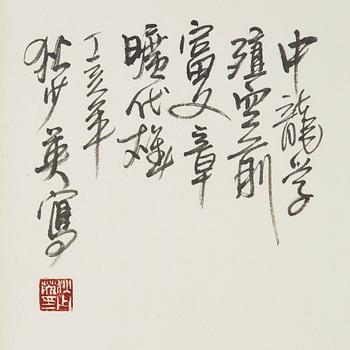 中龍学
殖空前
富文章
曠代雄
丁亥年
狄少英寫